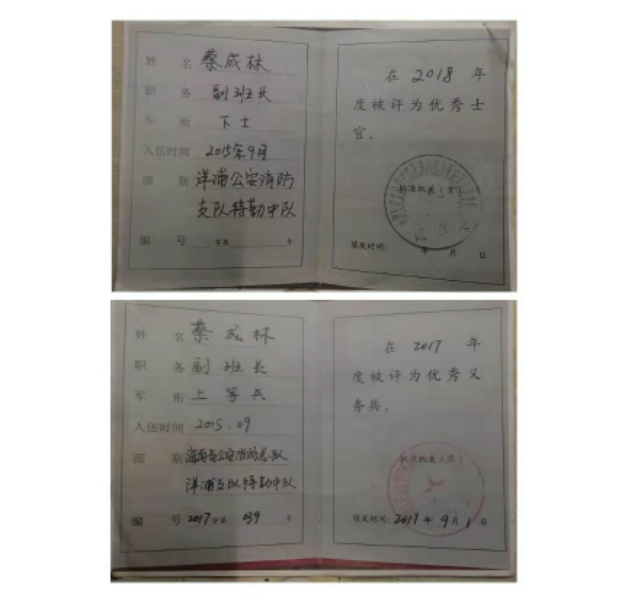 姓 名 蔡成林
职 务 副班长
军 衔 下士
入伍时间 2015年9月
部 别 洋浦公安消防
支队特勤中队
编 号 字第 号
在 2018 年
度被评为优秀士
官。
批准机关(章)
填发时间: 年 月 日
姓 名 蔡成林
职 务 副班长
军 衔 上等兵
入伍时间 2015.09
部 别 海南省公安消防总队
洋浦支队特勤中队
编 号 2017 字第 039 号
在 2017 年
度被评为优秀义
务兵。
批准机关(章)
填发时间: 2017 年 9 月 1 日